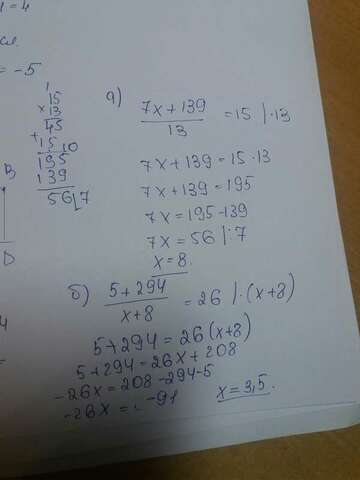 = 4
= -5
15
× 13
45
+ 15 10
195
139
56 7
В
D
4
а)
7x + 139 / 13 = 15 | · 13
7x + 139 = 15 · 13
7x + 139 = 195
7x = 195 - 139
7x = 56 | : 7
x = 8
б)
5 + 294 / x + 8 = 26 | · (x + 8)
5 + 294 = 26 (x + 8)
5 + 294 = 26x + 208
-26x = 208 - 294 - 5
-26x = -91
x = 3,5.